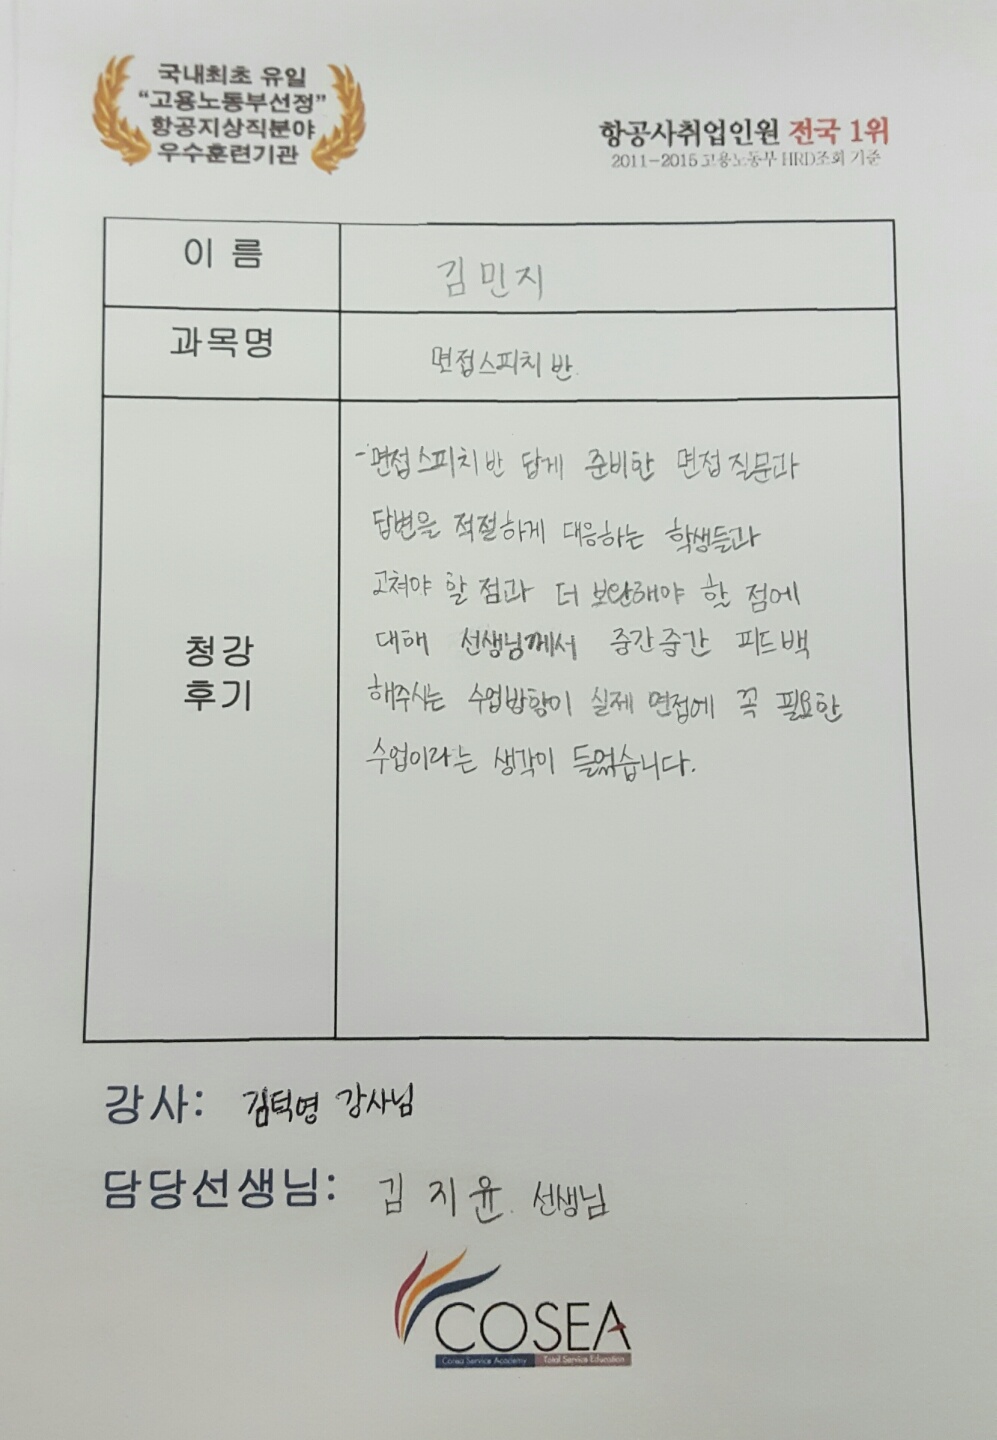 국내최초 유일
“고용노동부선정”
항공지상직분야
우수훈련기관
항공사취업인원 전국 1위
2011-2015 고용노동부 HRD조회 기준
이 름
김민지
과목명
면접스피치 반.
청강
후기
-면접스피치반 답게 준비한 면접 질문과
답변을 적절하게 대응하는 학생들과
고쳐야 할 점과 더 보완해야 할 점에
대해 선생님께서 중간중간 피드백
해주시는 수업방향이 실제 면접에 꼭 필요한
수업이라는 생각이 들었습니다.
강사: 김덕영 강사님
담당선생님: 김 지 윤. 선생님
COSEA
Cosea Service Academy Total Service Education